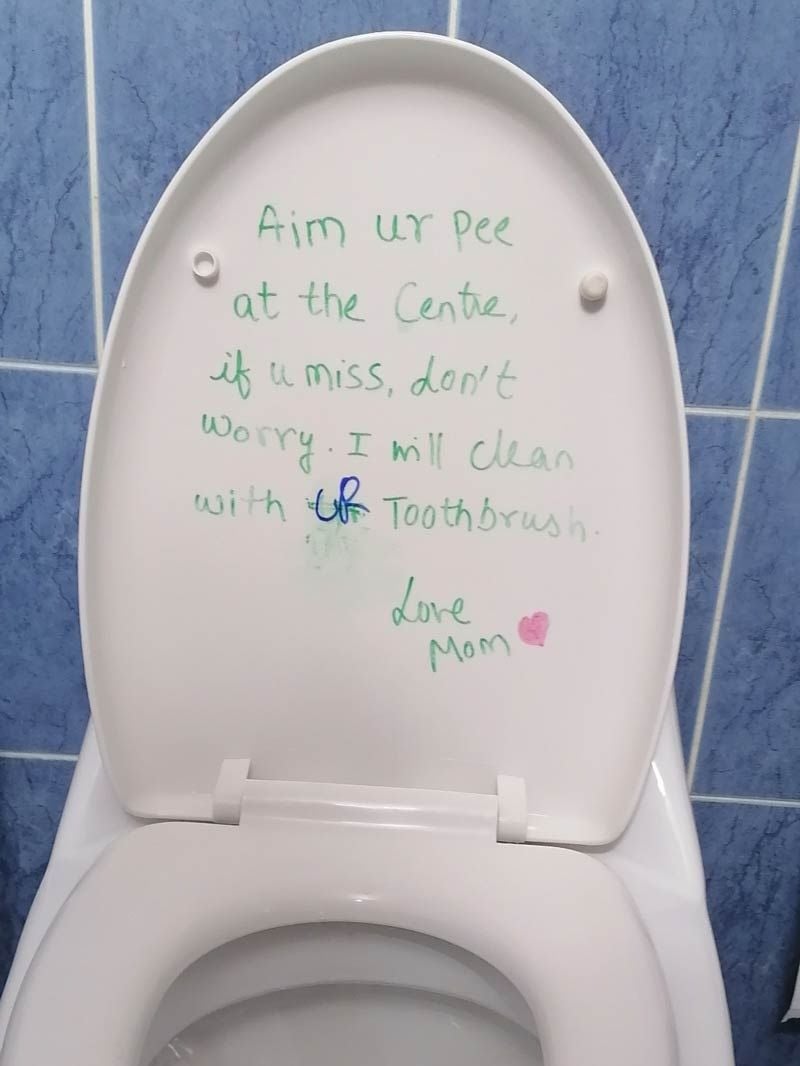 Aim ur pee
at the Centre,
if u miss, don't
worry. I will clean
with UR Toothbrush.
Love
Mom